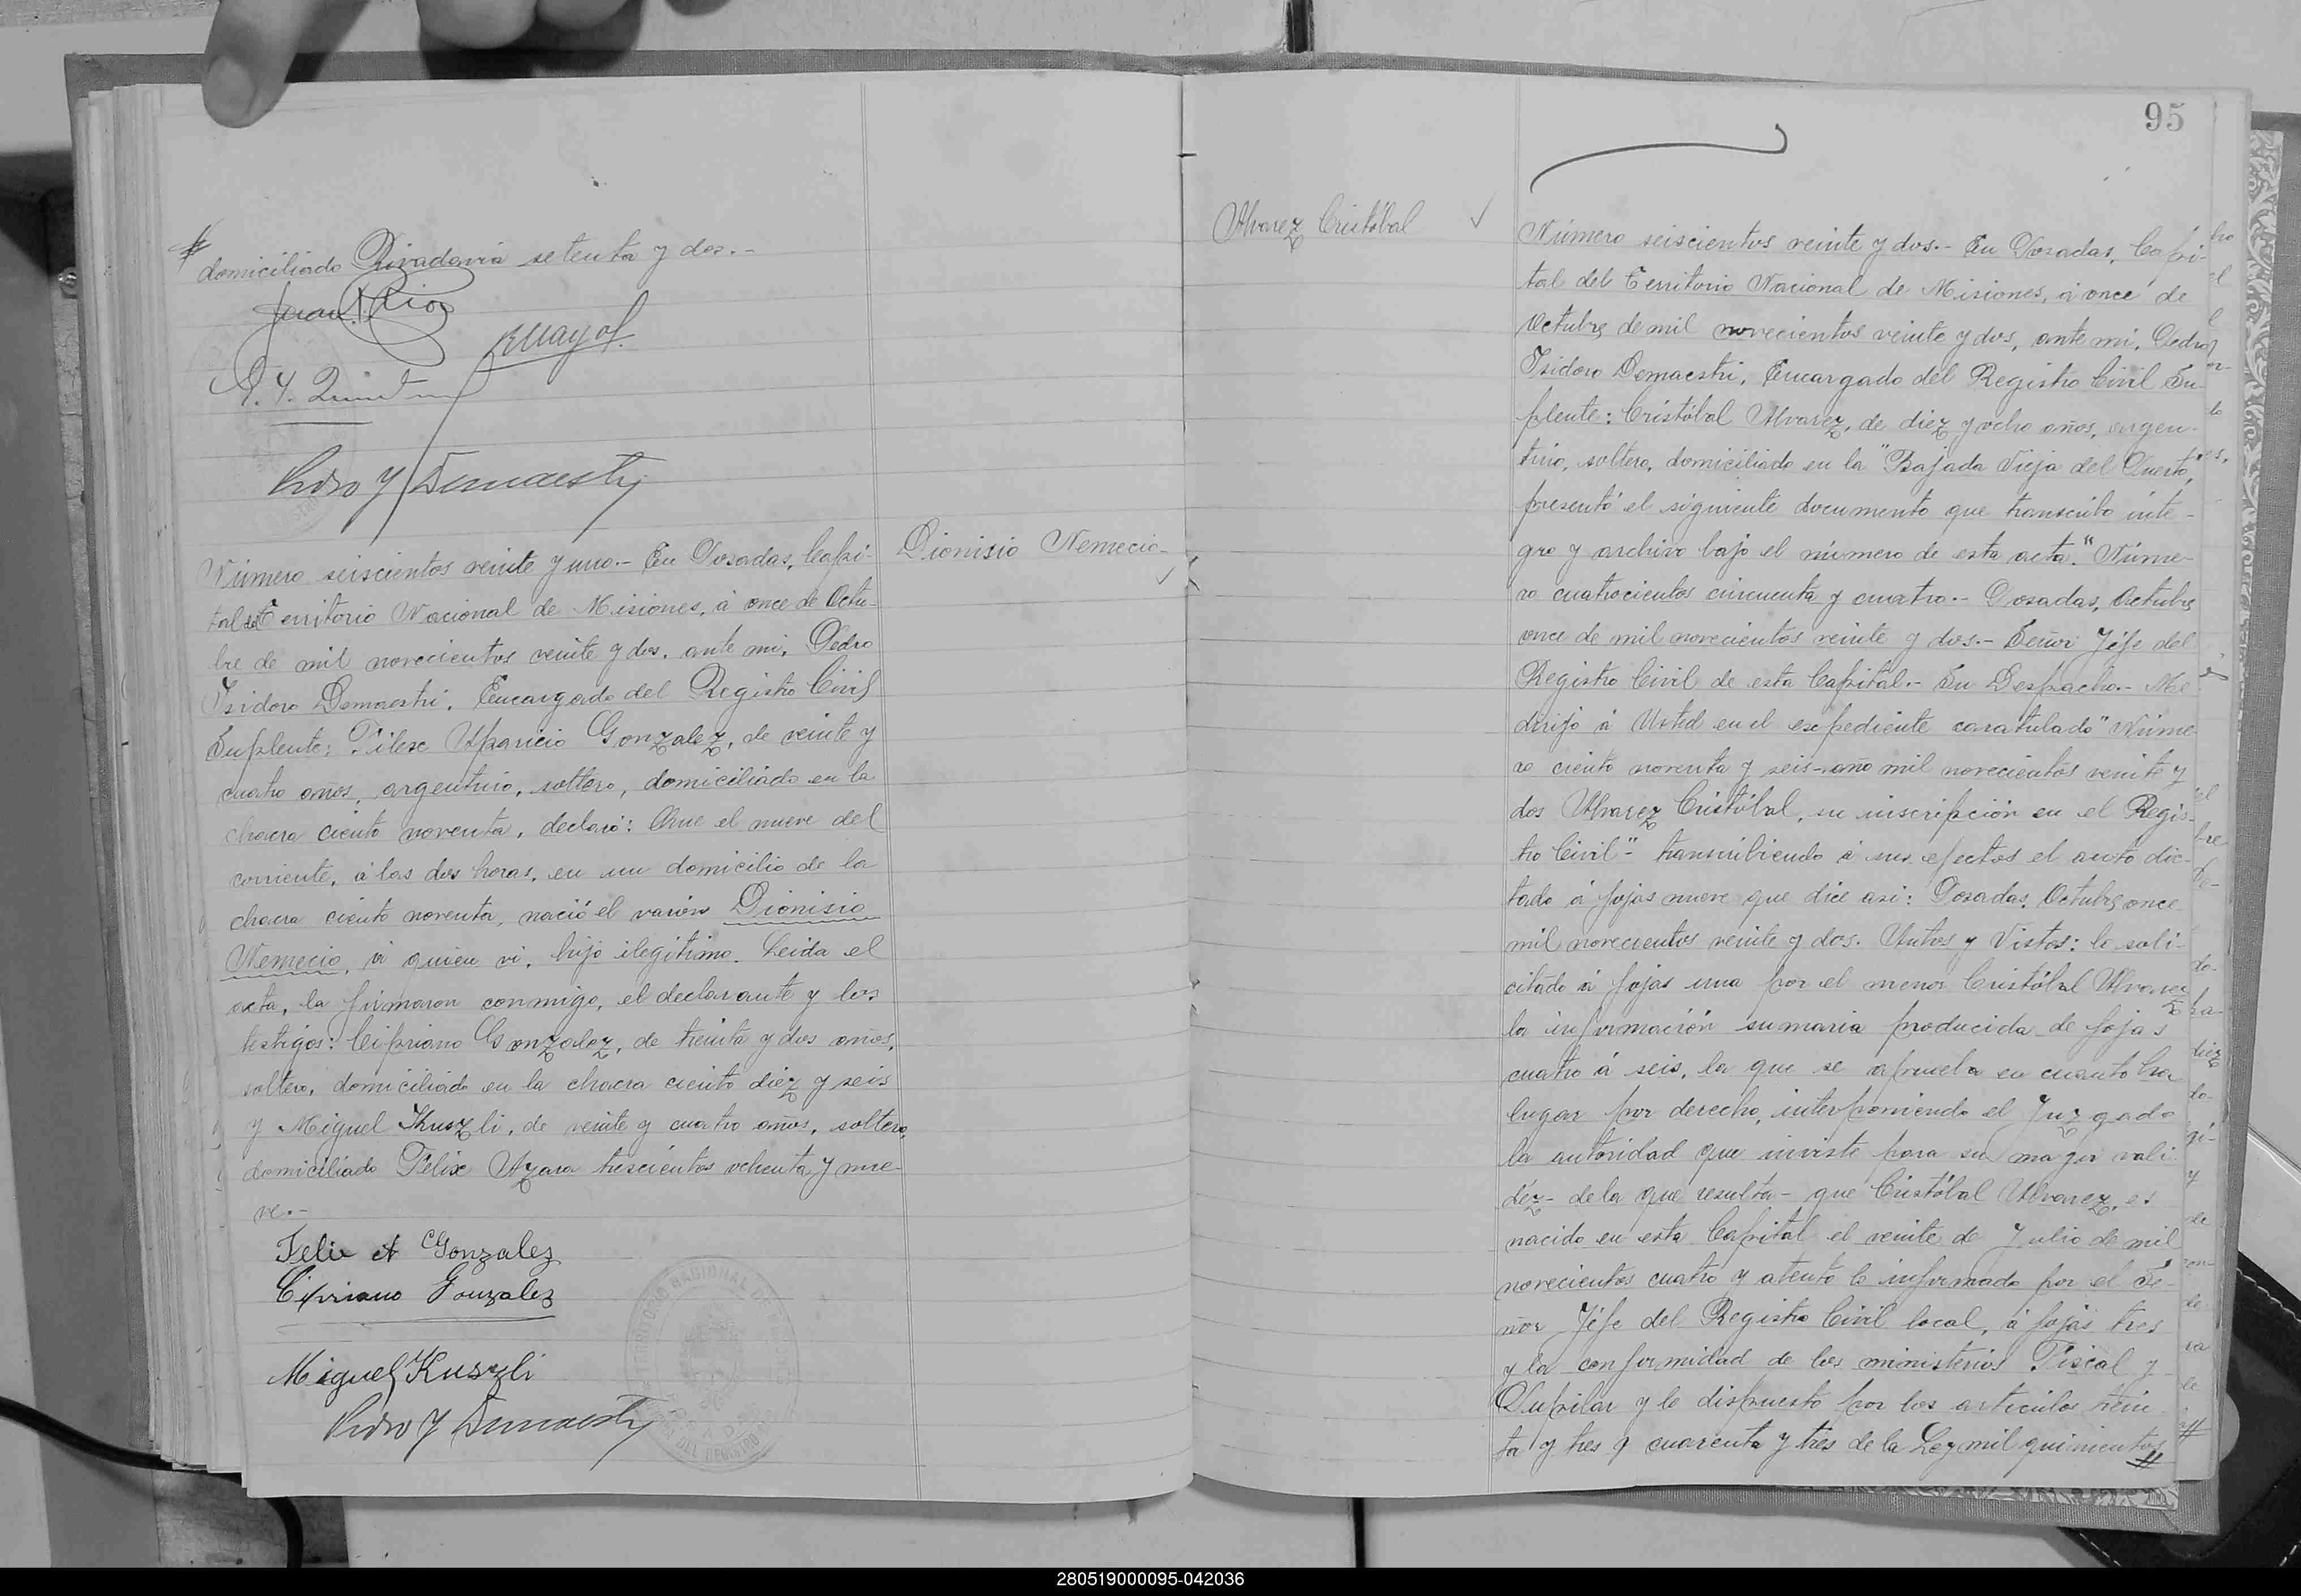 # domiciliado Rivadavia setenta y dos.-
Pedro Y Demaestri
Número seiscientos veinte y uno.- En Posadas, Capi-
tal del Territorio Nacional de Misiones, á once de Octu-
bre de mil novecientos veinte y dos, ante mi, Pedro
Isidoro Demaestri, Encargado del Registro Civil
Suplente: Félix Aparicio Gonzalez, de veinte y
cuatro años, argentino, soltero, domiciliado en la
chacra ciento noventa, declaró: Que el nueve del
corriente, á las dos horas, en un domicilio de la
chacra ciento noventa, nació el varón Dionisio
Nemecio, á quien vi, hijo ilegítimo. Leida el
acta, la firmaron conmigo, el declarante y los
testigos: Cipriano Gonzalez, de treinta y dos años,
soltero, domiciliado en la chacra ciento diez y seis
y Miguel Kuszli, de veinte y cuatro años, soltero,
domiciliado Félix Azara trescientos ochenta y nue-
ve.-
Felix A Gonzalez
Cipriano Gonzalez
Miguel Kuszli
Pedro Y Demaestri
Dionisio Nemecio-
95
Alvarez Cristóbal ✓
Número seiscientos veinte y dos.- En Posadas, Capi-
tal del Territorio Nacional de Misiones, á once de
Octubre de mil novecientos veinte y dos, ante mi, Pedro
Isidoro Demaestri, Encargado del Registro Civil Su-
plente: Cristóbal Alvarez, de diez y ocho años, argen-
tino, soltero, domiciliado en la "Bajada Vieja del Puerto",
presentó el siguiente documento que transcribo ínte-
gro y archivo bajo el número de esta acta. "Núme-
ro cuatrocientos cincuenta y cuatro.- Posadas, Octubre
once de mil novecientos veinte y dos.- Señor Jéfe del
Registro Civil de esta Capital.- Su Despacho.- Me
dirijo á Usted en el expediente caratulado "Núme-
ro ciento noventa y seis-año mil novecientos veinte y
dos Alvarez Cristóbal, su inscripción en el Regis-
tro Civil"- transcribiendo á sus efectos el auto dic-
tado á fojas nueve que dice asi: Posadas, Octubre once
mil novecientos veinte y dos. Autos y Vistos: lo soli-
citado á fojas una por el menor Cristóbal Alvarez
la información sumaria producida de fojas
cuatro á seis, la que se aprueba en cuanto ha
lugar por derecho, interponiendo el Juzgado
la autoridad que inviste para su mayor vali-
déz- de la que resulta- que Cristóbal Alvarez, es
nacido en esta Capital el veinte de Julio de mil
novecientos cuatro y atento lo informado por el Se-
ñor Jéfe del Registro Civil local, á fojas tres
y la conformidad de los ministerios Fiscal y
Pupilar y lo dispuesto por los artículos trein-
ta y tres y cuarenta y tres de la Ley mil quinientos
#
280519000095-042036